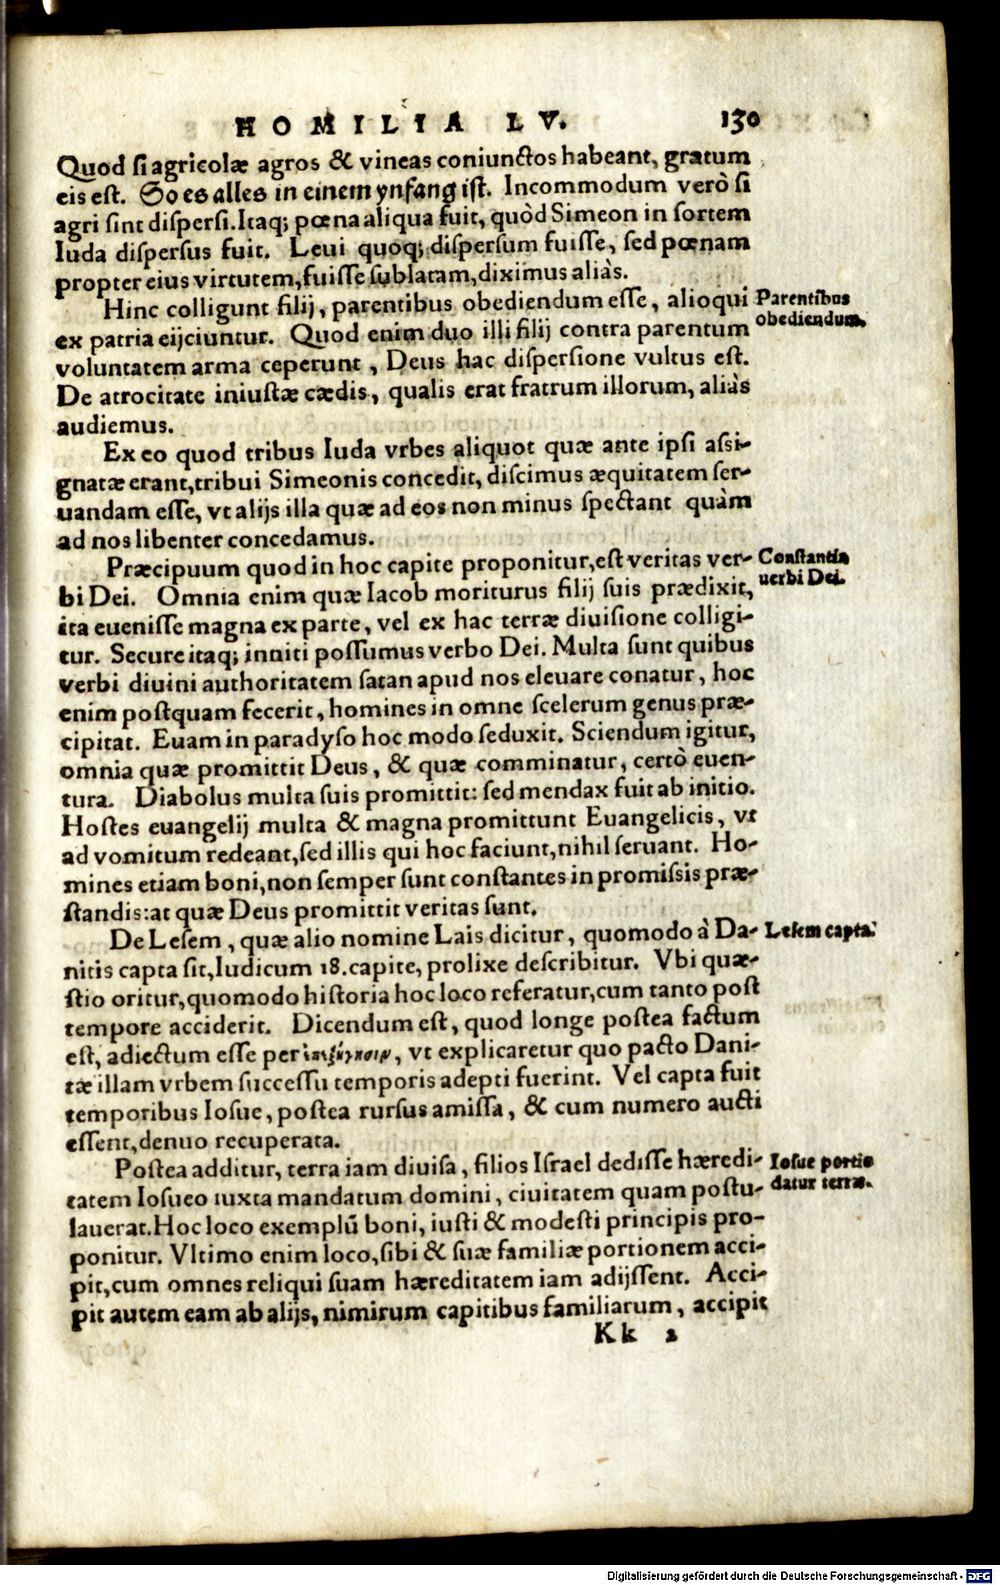 HOMILIA LV. 130
Quod si agricolæ agros & vineas coniunctos habeant, gratum
eis est. So es alles in einem ynfang ist. Incommodum verò si
agri sint dispersi. Itaq; pœna aliqua fuit, quòd Simeon in sortem
Iuda dispersus fuit. Leui quoq; dispersum fuisse, sed pœnam
propter eius virtutem, fuisse sublatam, diximus aliàs.
Hinc colligunt filij, parentibus obediendum esse, alioqui
Parentibus
obediendum.
ex patria eijciuntur. Quod enim duo illi filij contra parentum
voluntatem arma ceperunt, Deus hac dispersione vultus est.
De atrocitate iniustæ cædis, qualis erat fratrum illorum, aliàs
audiemus.
Ex eo quod tribus Iuda vrbes aliquot quæ ante ipsi assi-
gnatæ erant, tribui Simeonis concedit, discimus æquitatem ser-
uandam esse, vt alijs illa quæ ad eos non minus spectant quàm
ad nos libenter concedamus.
Præcipuum quod in hoc capite proponitur, est veritas ver-
Constantia
uerbi Dei.
bi Dei. Omnia enim quæ Iacob moriturus filij suis prædixit,
ita euenisse magna ex parte, vel ex hac terræ diuisione colligi-
tur. Secure itaq; inniti possumus verbo Dei. Multa sunt quibus
verbi diuini authoritatem satan apud nos eleuare conatur, hoc
enim postquam fecerit, homines in omne scelerum genus præ-
cipitat. Euam in paradyso hoc modo seduxit. Sciendum igitur,
omnia quæ promittit Deus, & quæ comminatur, certò euen-
tura. Diabolus multa suis promittit: sed mendax fuit ab initio.
Hostes euangelij multa & magna promittunt Euangelicis, vt
ad vomitum redeant, sed illis qui hoc faciunt, nihil seruant. Ho-
mines etiam boni, non semper sunt constantes in promissis præ-
standis: at quæ Deus promittit veritas sunt.
De Lesem, quæ alio nomine Lais dicitur, quomodo à Da-
Lesem capta.
nitis capta sit, Iudicum 18. capite, prolixe describitur. Vbi quæ-
stio oritur, quomodo historia hoc loco referatur, cum tanto post
tempore acciderit. Dicendum est, quod longe postea factum
est, adiectum esse per ἐπεξήγησιν, vt explicaretur quo pacto Dani-
tæ illam vrbem successu temporis adepti fuerint. Vel capta fuit
temporibus Iosue, postea rursus amissa, & cum numero aucti
essent, denuo recuperata.
Postea additur, terra iam diuisa, filios Israel dedisse hæredi-
Iosue portio
datur terræ.
tatem Iosueo iuxta mandatum domini, ciuitatem quam postu-
lauerat. Hoc loco exemplū boni, iusti & modesti principis pro-
ponitur. Vltimo enim loco, sibi & suæ familiæ portionem acci-
pit, cum omnes reliqui suam hæreditatem iam adijssent. Acci-
pit autem eam ab alijs, nimirum capitibus familiarum, accipit
Kk 2
Digitalisierung gefördert durch die Deutsche Forschungsgemeinschaft - DFG